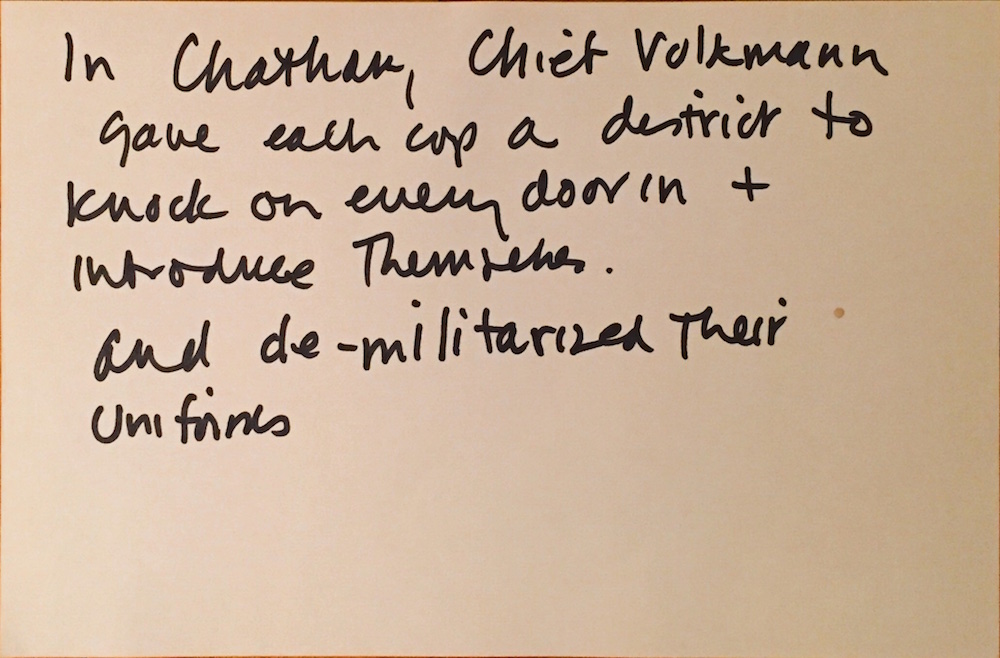 In Chatham, Chief Volkmann
gave each cop a district to
knock on every door in +
introduce Themselves.
and de-militarized Their
uniforms